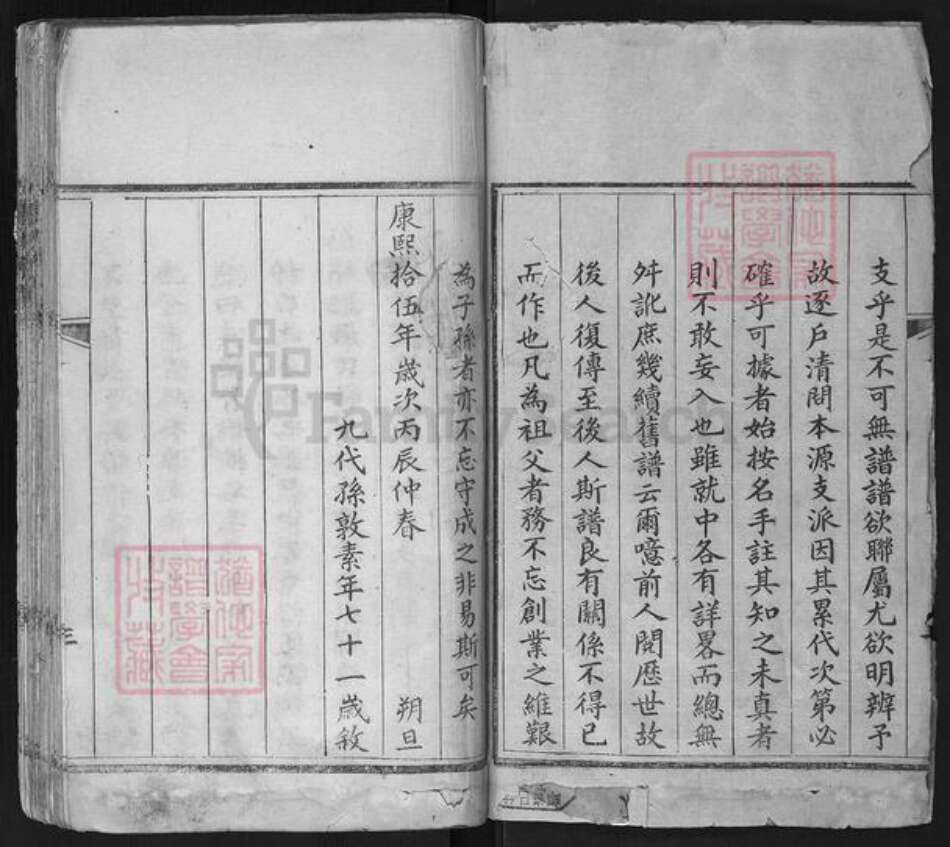 支乎是不可無譜譜欲聯屬尤欲明辨予
故逐戶清開本源支派因其累代次第必
確乎可據者始按名手註其知之未真者
則不敢妄入也雖就中各有詳畧而總無
舛訛庶幾續舊譜云爾噫前人閱歷世故
後人復傳至後人斯譜良有關係不得已
而作也凡為祖父者務不忘創業之維艱
為子孫者亦不忘守成之非易斯可矣
康熙拾伍年歲次丙辰仲春 朔旦
九代孫敦素年七十一歲敘
三
FamilySearch